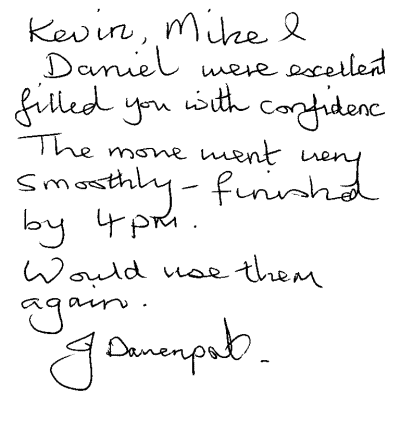 Kevin, Mike &
Daniel were excellent
filled you with confidenc
The move went very
smoothly - finished
by 4 pm.
Would use them
again.
J Davenpab.